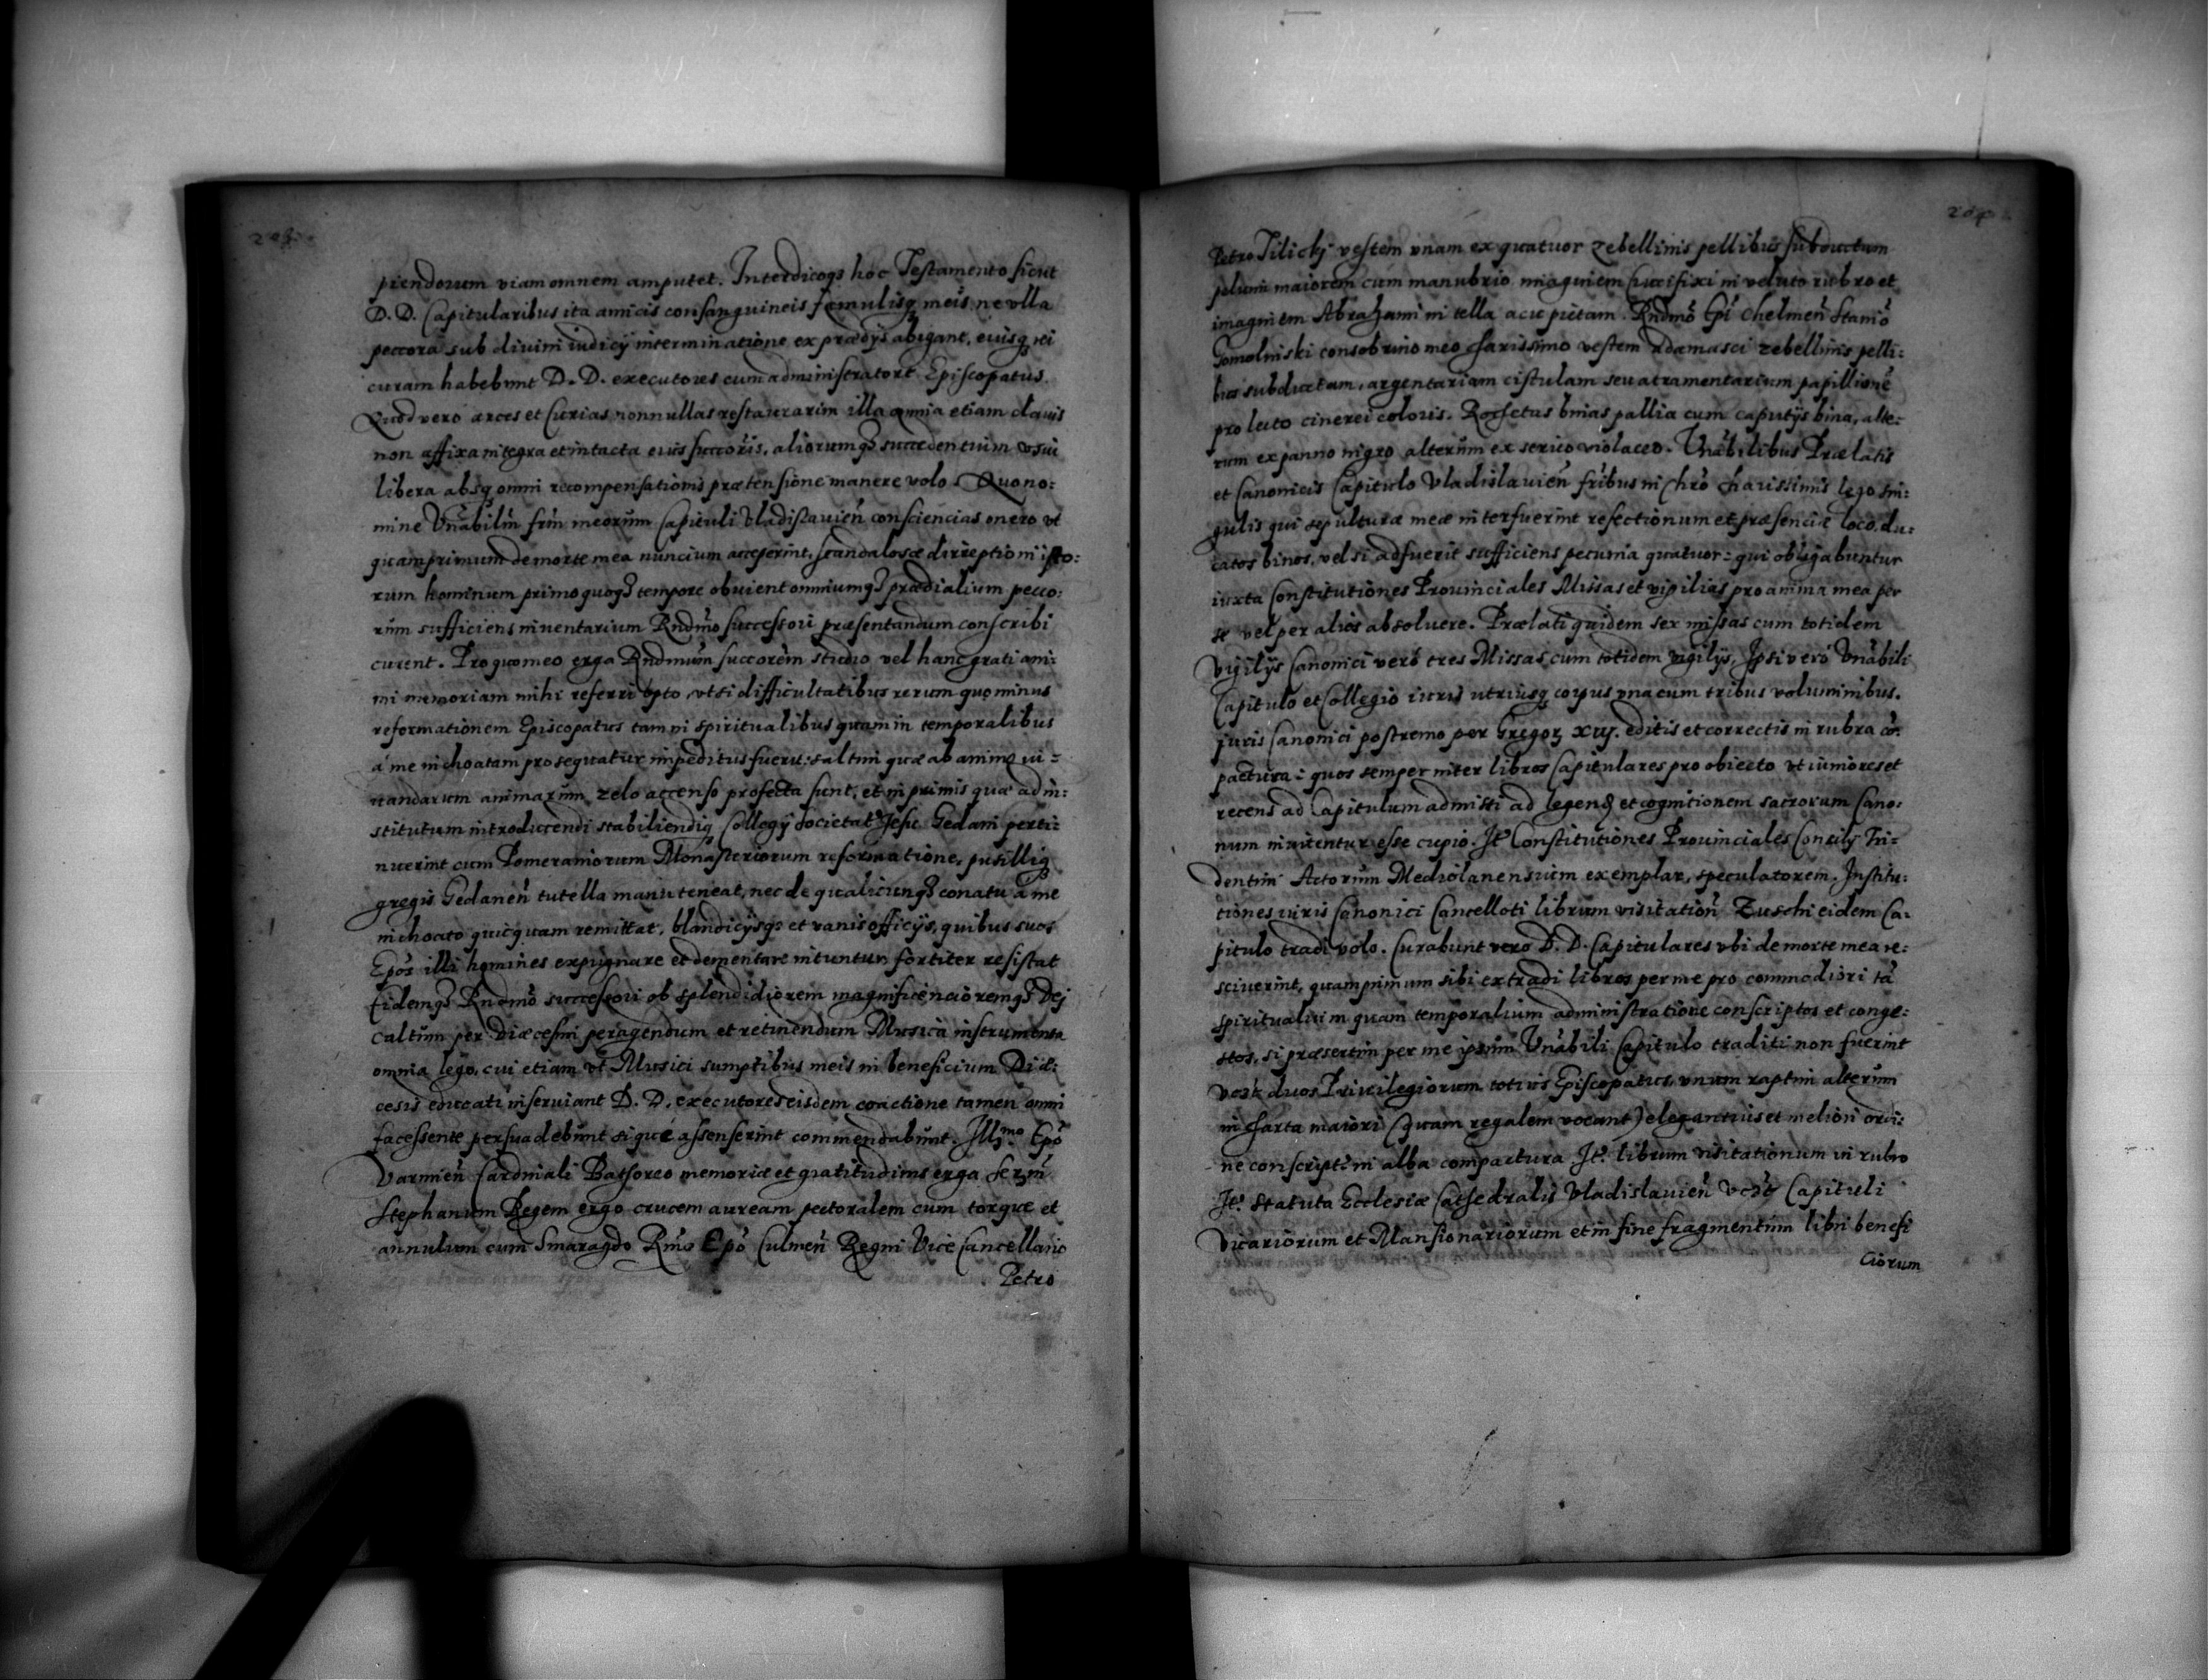 piendorum viam omnem amputet. Interdicoqȝ hoc Testamento sicut
D. D. Capitularibus ita amicis consanguineis famulisqȝ meis ne vlla
peccora sub diuini iudicij interminatione ex prædijs abigant, eiusqȝ rei
curam habebunt D. D. executores cum administratore Episcopatus.
Quod vero arces et Curias nonnullas restaurarim illa omnia etiam clauis
non affixa integra et intacta eius succoris, aliorumqȝ succedentium vsui
libera absqȝ omni recompensationis prætensione manere volo. Quo no:
mine Vnãbiliũ frũ meorum Capituli Vladislauieñ consciencias onero vt
quamprimum de morte mea nuncium acceperint, scandalosæ direptioni isto:
rum hominum primo quoqȝ tempore obuient omniumqȝ prædialium pecco:
rum sufficiens inuentarium Rndmo successori præsentandum conscribi
curent. Pro quo meo erga Rndmum succorem studio vel hanc grati ani:
mi memoriam mihi referri opto, vt si difficultatibus rerum quo minus
reformationem Episcopatus tam in spiritualibus quam in temporalibus
a me inchoatam prosequatur impeditus fuerit: saltim quæ ab animo iu=
uandarum animarum zelo accenso profecta sunt, et in primis quæ ad in:
stitutum introducendi stabiliendiqȝ Collegij Societatȩ Jesu Gedani perti:
nuerint cum Pomeraniorum Monasteriorum reformatione, pusilliqȝ
gregis Gedaneñ tutella manu teneat, nec de qualicunqȝ conatu à me
inchoato quicquam remittat, blandicijsqȝ et vanis officijs, quibus suos
Epos illi homines expugnare et dementare intuntur fortiter resistat
Eidemqȝ Rndmo successori ob splendidiorem magnificencioremqȝ Dej
Caltum per Diæcesim peragendum et retinendum Musica instrumenta
omnia lego, cui etiam vt Musici sumptibus meis in beneficium Diæ:
cesis educati inseruiant D. D. executores eisdem coactione tamen omni
facessente persuadebunt siqué assenserint commendabunt. Illmo Epo
Varmieñ Cardinali Bathoreo memoriæ et gratitudinis erga Serm
Stephanum Regem ergo crucem auream pectoralem cum torque et
annulum cum Smaragdo Rmo Epo Culmeñ Regni Vice Cancellario
Petro
Petro Tilickj vestem vnam ex quatuor zebellinis pellibus subductum
maiorem cum manubrio imaginem Crucifixi in veluto rubro et
imaginem Abrahami in tella acu pictam. Rndmo Epi Chelmeñ Stanio
Gomolinski consobrino meo charissimo vestem adamasci zebellinis pelli:
bus subductam, argentariam cistulam seu atramentarium papillione
pro lecto cinerei coloris. Rochetas binas pallia cum caputijs bina, alte:
rum ex panno nigro alterum ex serico violaceo. Vnãbilibus Prælatis
et Canonicis Capitulo Vladislauieñ fribus in Chro charissimis lego sin:
gulis qui sepulturæ meæ interfuerint refectionum et præsenciæ loco, du:
catos binos, vel si adfuerit sufficiens pecunia quatuor: qui obligabuntur
iuxta Constitutiones Prouinciales Missas et vigilias pro anima mea per
se vel per alios absoluere. Prælati quidem sex missas cum totidem
Vigilijs Canonici verò tres Missas cum totidem vigilijs, Ipsi verò Vnãbili
Capitulo et Collegio iuris utriusqȝ corpus vna cum tribus voluminibus.
juris Canonici postremo per Gregoȝ xiij. editis et correctis in rubra cõ
pactura: quos semper inter libros Capitulares pro obiecto vt iuniores et
recens ad Capitulum admisti ad legenȡ et cognitionem sacrorum Cano:
num inuitentur esse cupio. Itȩ Constitutiones Prouinciales Concilij Tri=
dentini Actorum Mediolanensium exemplar, speculatorem. Institu:
tiones iuris Canonici Cancelloti librum visitationũ Zuschi eidem Ca:
pitulo tradi volo. Curabunt vero D. D. Capitulares vbi de morte mea re:
sciuerint, quamprimum sibi extradi libros per me pro commodiori tã
spiritualium quam temporalium administratione conscriptos et conge:
stos, si præsertim per me ipsum Vnãbili Capitulo traditi non fuerint
duos Priuilegiorum totius Episcopatus, vnum raptim alterum
in charta maiori (quam regalem vocant) elegantius et meliori ordi:
ne conscriptȩ in alba compactura Itȩ. librum visitationum in rubro
Itȩ. Statuta Ecclesiæ Cathedralis Vladislauieñ Capituli
Vicariorum et Mansionariorum et in fine fragmentum libri benefi
Ciorum